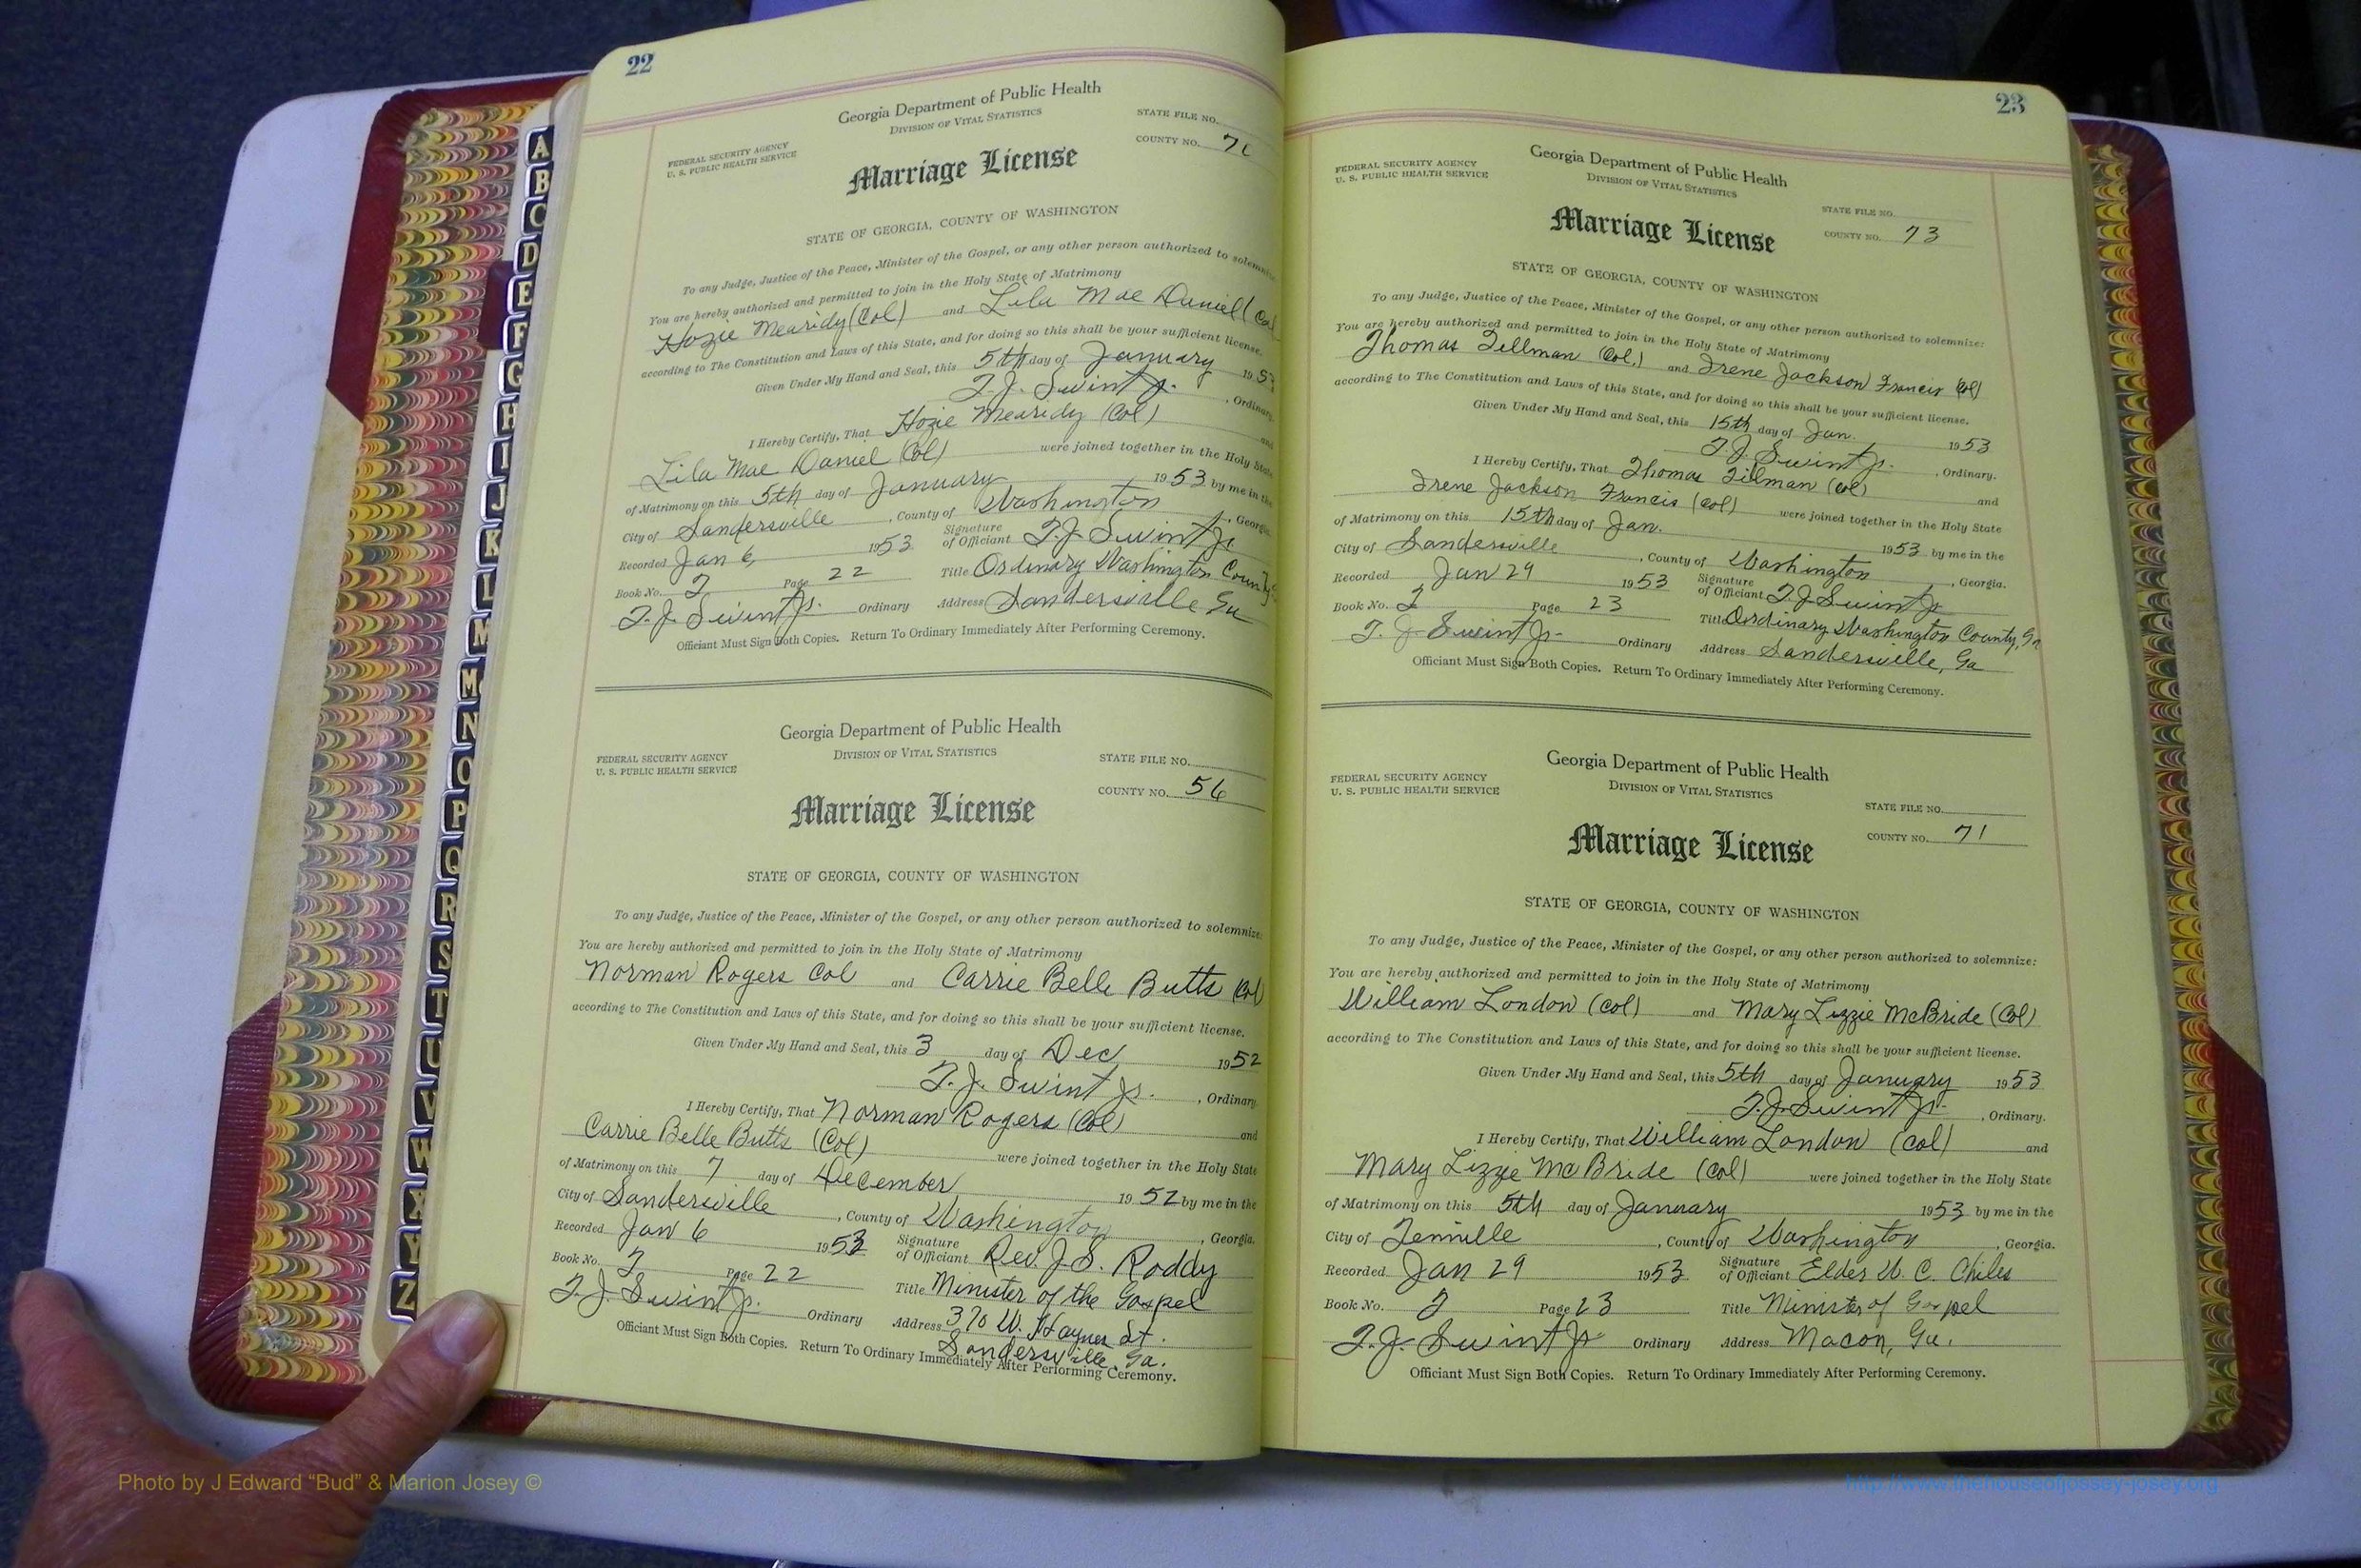 22
Georgia Department of Public Health
DIVISION OF VITAL STATISTICS
STATE FILE NO.
COUNTY NO.
FEDERAL SECURITY AGENCY
U. S. PUBLIC HEALTH SERVICE
Marriage License
STATE OF GEORGIA, COUNTY OF WASHINGTON
To any Judge, Justice of the Peace, Minister of the Gospel, or any other person authorized to solemnize
You are hereby authorized and permitted to join in the Holy State of Matrimony
Hozie Mearidy (Col) and Lila Mae Daniel (Col
according to The Constitution and Laws of this State, and for doing so this shall be your sufficient license.
Given Under My Hand and Seal, this 5th day of January 1953
T. J. Swint Jr. , Ordinary.
I Hereby Certify, That Hozie Mearidy (Col) and
Lila Mae Daniel (Col) were joined together in the Holy State
of Matrimony on this 5th day of January 1953 by me in the
City of Sandersville , County of Washington , Georgia
Recorded Jan 6, 1953 Signature of Officiant T. J. Swint Jr
Book No. Page 22 Title Ordinary Washington County
T. J. Swint Jr. Ordinary Address Sandersville Ga
Officiant Must Sign Both Copies. Return To Ordinary Immediately After Performing Ceremony.
Georgia Department of Public Health
DIVISION OF VITAL STATISTICS
FEDERAL SECURITY AGENCY
U. S. PUBLIC HEALTH SERVICE
STATE FILE NO.
COUNTY NO. 56
Marriage License
STATE OF GEORGIA, COUNTY OF WASHINGTON
To any Judge, Justice of the Peace, Minister of the Gospel, or any other person authorized to solemnize:
You are hereby authorized and permitted to join in the Holy State of Matrimony
Norman Rogers Col and Carrie Belle Butts (Col)
according to The Constitution and Laws of this State, and for doing so this shall be your sufficient license.
Given Under My Hand and Seal, this 3 day of Dec 1952
T. J. Swint Jr. , Ordinary.
I Hereby Certify, That Norman Rogers (Col) and
Carrie Belle Butts (Col) were joined together in the Holy State
of Matrimony on this 7 day of December 1952 by me in the
City of Sandersville , County of Washington , Georgia.
Recorded Jan 6 1953 Signature of Officiant Rev. J. S. Roddy
Book No. Page 22 Title Minister of the Gospel
T. J. Swint Jr. Ordinary Address 370 W. Haynes St.
Sandersville, Ga.
Officiant Must Sign Both Copies. Return To Ordinary Immediately After Performing Ceremony.
23
Georgia Department of Public Health
DIVISION OF VITAL STATISTICS
FEDERAL SECURITY AGENCY
U. S. PUBLIC HEALTH SERVICE
STATE FILE NO.
COUNTY NO. 73
Marriage License
STATE OF GEORGIA, COUNTY OF WASHINGTON
To any Judge, Justice of the Peace, Minister of the Gospel, or any other person authorized to solemnize:
You are hereby authorized and permitted to join in the Holy State of Matrimony
Thomas Tillman (Col.) and Irene Jackson Francis (Col)
according to The Constitution and Laws of this State, and for doing so this shall be your sufficient license.
Given Under My Hand and Seal, this 15th day of Jan. 1953
T. J. Swint Jr. , Ordinary.
I Hereby Certify, That Thomas Tilman (Col) and
Irene Jackson Francis (Col) were joined together in the Holy State
of Matrimony on this 15th day of Jan. 1953 by me in the
City of Sandersville , County of Washington , Georgia.
Recorded Jan 29 1953 Signature of Officiant T. J. Swint Jr
Book No. Page 23 Title Ordinary Washington County, Ga
T. J. Swint Jr. Ordinary Address Sandersville, Ga
Officiant Must Sign Both Copies. Return To Ordinary Immediately After Performing Ceremony.
Georgia Department of Public Health
DIVISION OF VITAL STATISTICS
FEDERAL SECURITY AGENCY
U. S. PUBLIC HEALTH SERVICE
STATE FILE NO.
COUNTY NO. 71
Marriage License
STATE OF GEORGIA, COUNTY OF WASHINGTON
To any Judge, Justice of the Peace, Minister of the Gospel, or any other person authorized to solemnize:
You are hereby authorized and permitted to join in the Holy State of Matrimony
William London (Col) and Mary Lizzie McBride (Col)
according to The Constitution and Laws of this State, and for doing so this shall be your sufficient license.
Given Under My Hand and Seal, this 5th day of January 1953
T. J. Swint Jr. , Ordinary.
I Hereby Certify, That William London (Col) and
Mary Lizzie McBride (Col) were joined together in the Holy State
of Matrimony on this 5th day of January 1953 by me in the
City of Tennille , County of Washington , Georgia.
Recorded Jan 29 1953 Signature of Officiant Elder W. C. Chiles
Book No. Page 23 Title Minister of Gospel
T. J. Swint Jr Ordinary Address Macon, Ga.
Officiant Must Sign Both Copies. Return To Ordinary Immediately After Performing Ceremony.
A
B
C
D
E
F
G
H
I
J
K
L
M
Mc
N
O
P
Q
R
S
T
U
V
W
X
Y
Z
Photo by J Edward “Bud” & Marion Josey ©
http://www.thehouseofjossey-josey.org